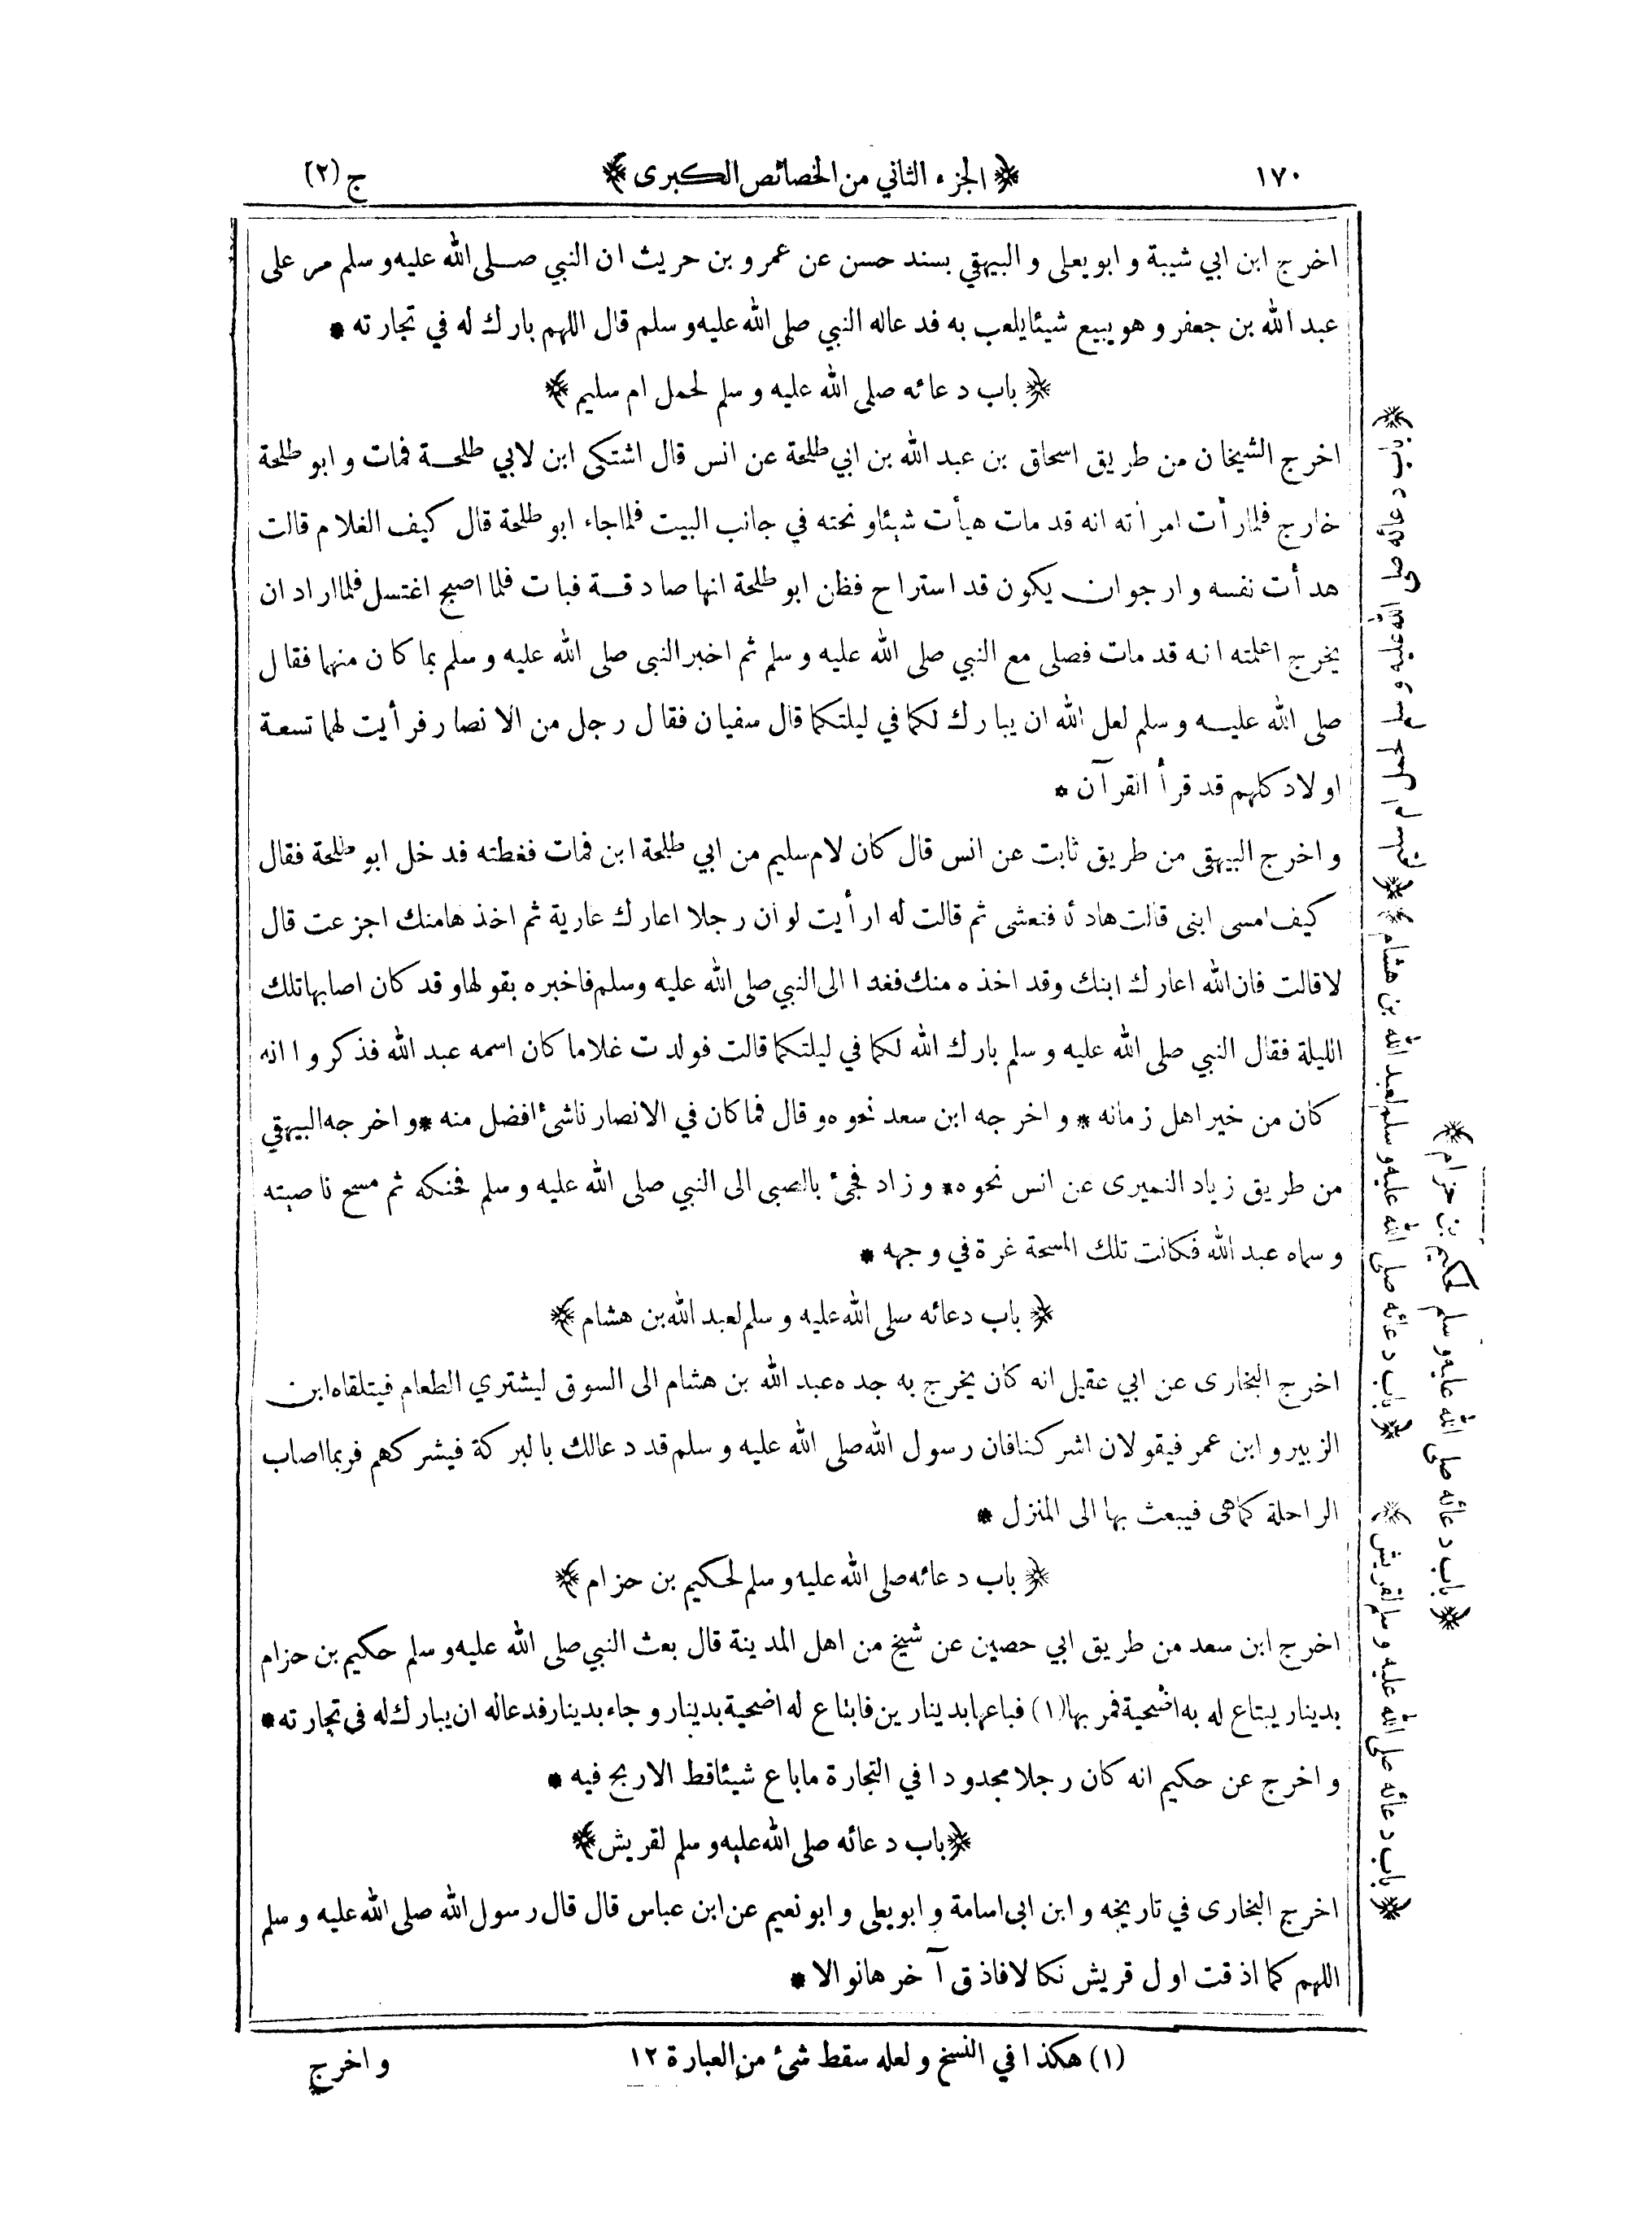 ١٧٠
﴿ الجزء الثاني من الخصائص الكبرى ﴾
ج (٢)
اخرج ابن ابي شيبة و ابو يعلى و البيهقي بسند حسن عن عمرو بن حريث ان النبي صلى الله عليه و سلم مر على
عبد الله بن جعفر و هو يبيع شيئا يلعب به فدعا له النبي صلى الله عليه و سلم قال اللهم بارك له في تجارته *
﴿ باب دعائه صلى الله عليه و سلم لحمل ام سليم ﴾
اخرج الشيخان من طريق اسحاق بن عبد الله بن ابي طلحة عن انس قال اشتكى ابن لابي طلحة فمات و ابو طلحة
خارج فلما رأت امرأته انه قد مات هيأت شيئا و نحته في جانب البيت فلما جاء ابو طلحة قال كيف الغلام قالت
هدأت نفسه و ارجو ان يكون قد استراح فظن ابو طلحة انها صادقة فبات فلما اصبح اغتسل فلما اراد ان
يخرج اعلمته انه قد مات فصلى مع النبي صلى الله عليه و سلم ثم اخبر النبي صلى الله عليه و سلم بما كان منها فقال
صلى الله عليه و سلم لعل الله ان يبارك لكما في ليلتكما قال سفيان فقال رجل من الانصار فرأيت لهما تسعة
اولاد كلهم قد قرأ القرآن *
و اخرج البيهقي من طريق ثابت عن انس قال كان لام سليم من ابي طلحة ابن فمات فغطته فدخل ابو طلحة فقال
كيف امسى ابنى قالت هادئا فتعشى ثم قالت له ارأيت لو ان رجلا اعارك عارية ثم اخذها منك اجزعت قال
لا قالت فان الله اعارك ابنك وقد اخذه منك فغدا الى النبي صلى الله عليه وسلم فاخبره بقولها و قد كان اصابها تلك
الليلة فقال النبي صلى الله عليه و سلم بارك الله لكما في ليلتكما قالت فولدت غلاما كان اسمه عبد الله فذكروا انه
كان من خير اهل زمانه * و اخرجه ابن سعد نحوه و قال فما كان في الانصار ناشئ افضل منه * و اخرجه البيهقي
من طريق زياد النميرى عن انس نحوه * و زاد فجئ بالصبى الى النبي صلى الله عليه و سلم فحنكه ثم مسح ناصيته
و سماه عبد الله فكانت تلك المسحة غرة في وجهه *
﴿ باب دعائه صلى الله عليه و سلم لعبد الله بن هشام ﴾
اخرج البخارى عن ابي عقيل انه كان يخرج به جده عبد الله بن هشام الى السوق ليشتري الطعام فيتلقاه ابن
الزبير و ابن عمر فيقولان اشركنا فان رسول الله صلى الله عليه و سلم قد دعا لك بالبركة فيشركهم فربما اصاب
الراحلة كما هى فيبعث بها الى المنزل *
﴿ باب دعائه صلى الله عليه و سلم لحكيم بن حزام ﴾
اخرج ابن سعد من طريق ابي حصين عن شيخ من اهل المدينة قال بعث النبي صلى الله عليه و سلم حكيم بن حزام
بدينار يبتاع له به اضحية فمر بها (١) فباعها بدينارين فابتاع له اضحية بدينار و جاء بدينار فدعا له ان يبارك له فى تجارته *
و اخرج عن حكيم انه كان رجلا مجدودا في التجارة ما باع شيئا قط الا ربح فيه *
﴿ باب دعائه صلى الله عليه و سلم لقريش ﴾
اخرج البخارى في تاريخه و ابن ابى اسامة و ابو يعلى و ابو نعيم عن ابن عباس قال قال رسول الله صلى الله عليه و سلم
اللهم كما اذقت اول قريش نكالا فاذق آخرها نوالا *
(١) هكذا في النسخ و لعله سقط شئ من العبارة ١٢
و اخرج
﴿ باب دعائه صلى الله عليه و سلم لحمل ام سليم ﴾
﴿ باب دعائه صلى الله عليه و سلم لعبد الله بن هشام ﴾
﴿ باب دعائه صلى الله عليه و سلم لحكيم بن حزام ﴾
﴿ باب دعائه صلى الله عليه و سلم لقريش ﴾